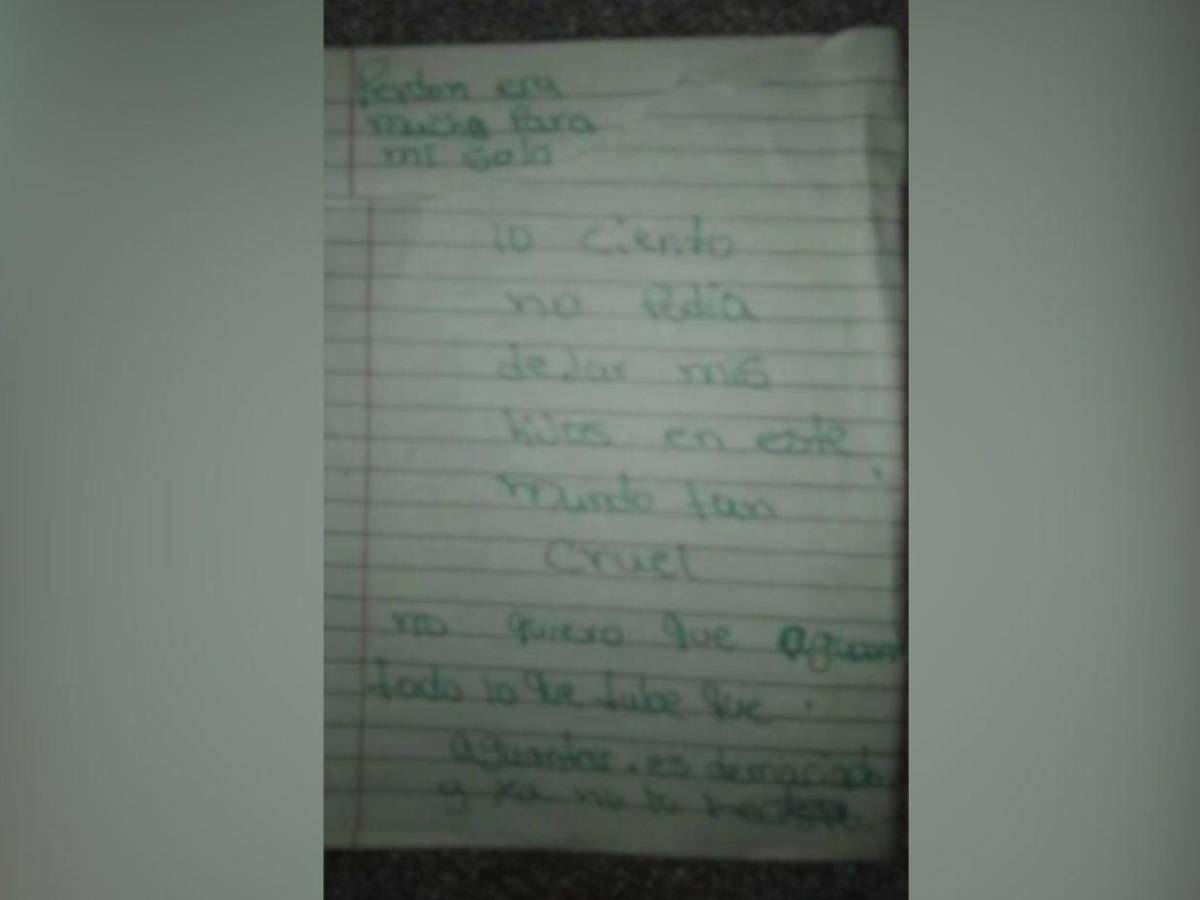 Perdon era
mucho para
mi sola
lo ciento
no Podia
dejar mis
hijos en este
mundo tan
Cruel
no quiero que
todo lo que tube que
aguantar. es demaciado
y ya no lo